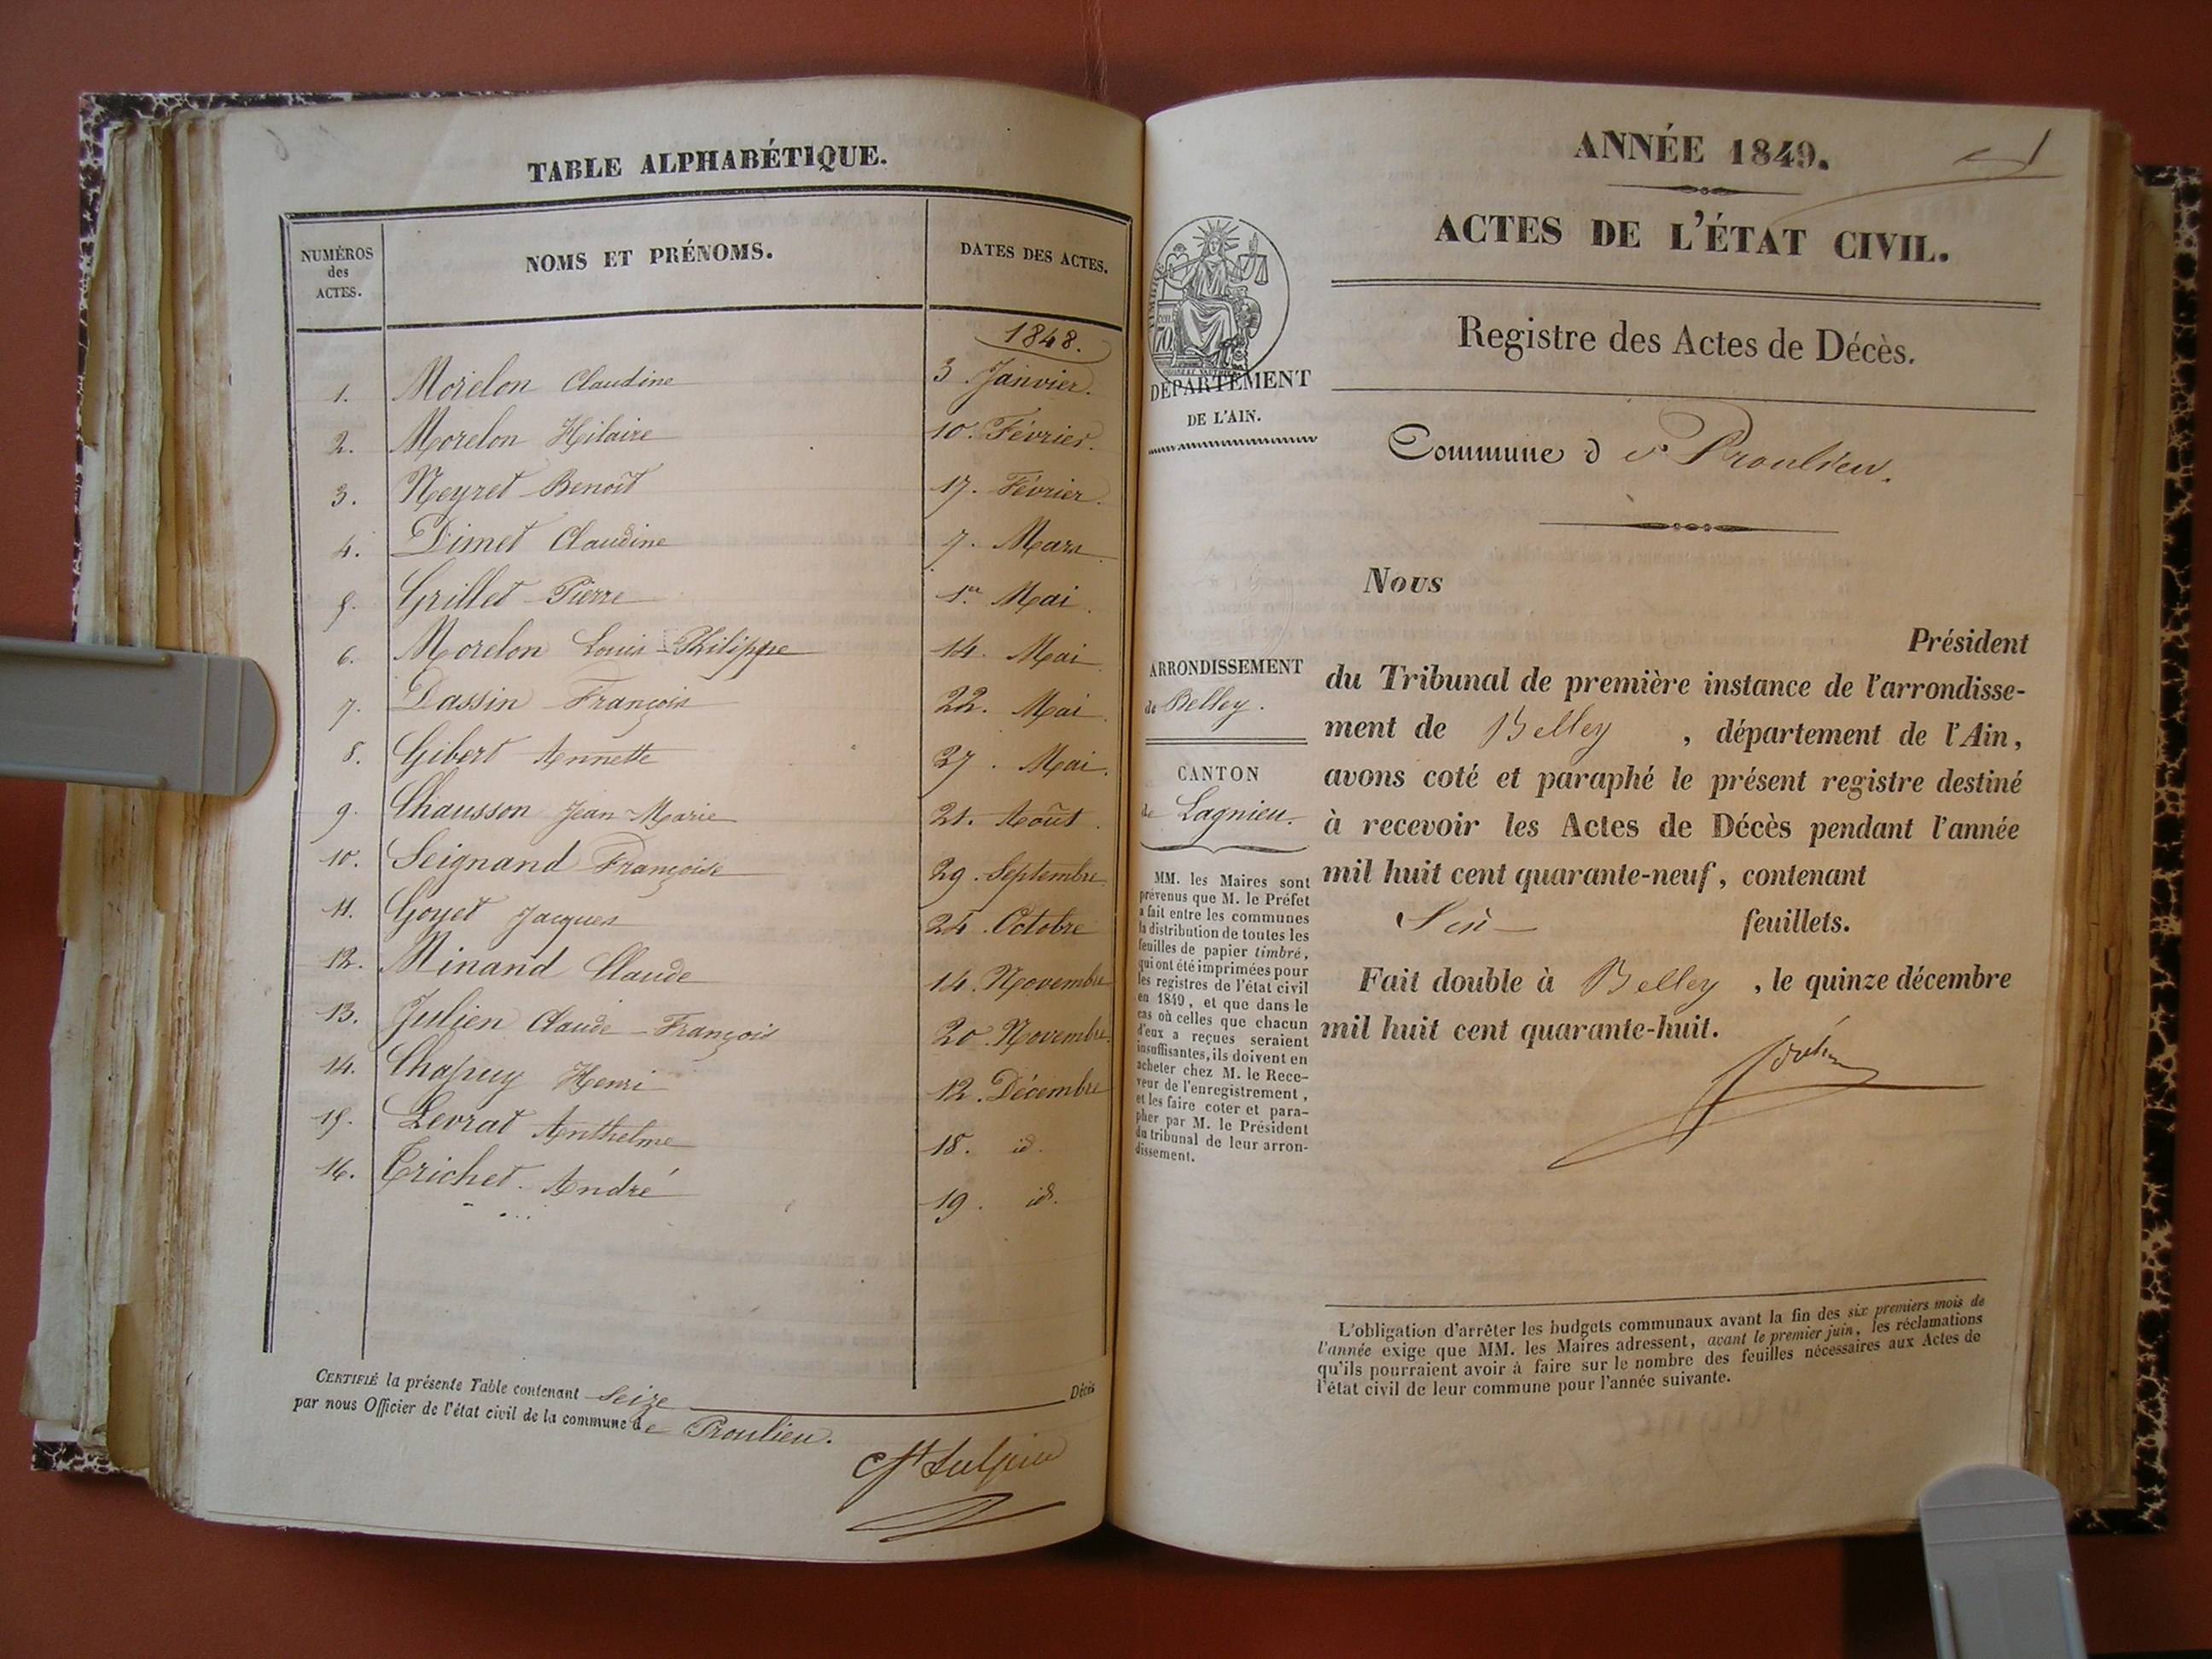 TABLE ALPHABÉTIQUE.
NUMÉROS des ACTES. NOMS ET PRÉNOMS. DATES DES ACTES.
1848.
1. Morelon Claudine 3. Janvier.
2. Morelon Hilaire 10. Février.
3. Neyret Benoît 17. Février.
4. Dimet Claudine 7. Mars
5. Grillet Pierre 1er Mai.
6. Morelon Louis-Philippe 14. Mai
7. Dassin François 22. Mai.
8. Gibert Annette 27. Mai.
9. Chausson Jean-Marie 21. Août.
10. Seignand Françoise 29. Septembre.
11. Goyet Jacques 24. Octobre
12. Minand Claude 14. Novembre
13. Julien Claude-François 20. Novembre.
14. Chapuy Henri 12. Décembre
15. Levrat Anthelme 18. id.
16. Trichet. André 19. id.
CERTIFIÉ la présente Table contenant seize Décès
par nous Officier de l'état civil de la commune de Proulieu.
ANNÉE 1849.
1
ACTES DE L'ÉTAT CIVIL.
Registre des Actes de Décès.
DÉPARTEMENT
DE L'AIN.
Commune de Proulieu.
Nous
Président
ARRONDISSEMENT
de Belley.
CANTON
de Lagnieu.
MM. les Maires sont
prévenus que M. le Préfet
a fait entre les communes
la distribution de toutes les
feuilles de papier timbré,
qui ont été imprimées pour
les registres de l'état civil
en 1849, et que dans le
cas où celles que chacun
d'eux a reçues seraient
insuffisantes, ils doivent en
acheter chez M. le Rece-
veur de l'enregistrement,
et les faire coter et para-
pher par M. le Président
du tribunal de leur arron-
dissement.
du Tribunal de première instance de l'arrondisse-
ment de Belley, département de l'Ain,
avons coté et paraphé le présent registre destiné
à recevoir les Actes de Décès pendant l'année
mil huit cent quarante-neuf, contenant
Six feuillets.
Fait double à Belley, le quinze décembre
mil huit cent quarante-huit.
L'obligation d'arrêter les budgets communaux avant la fin des six premiers mois de
l'année exige que MM. les Maires adressent, avant le premier juin, les réclamations
qu'ils pourraient avoir à faire sur le nombre des feuilles nécessaires aux Actes de
l'état civil de leur commune pour l'année suivante.